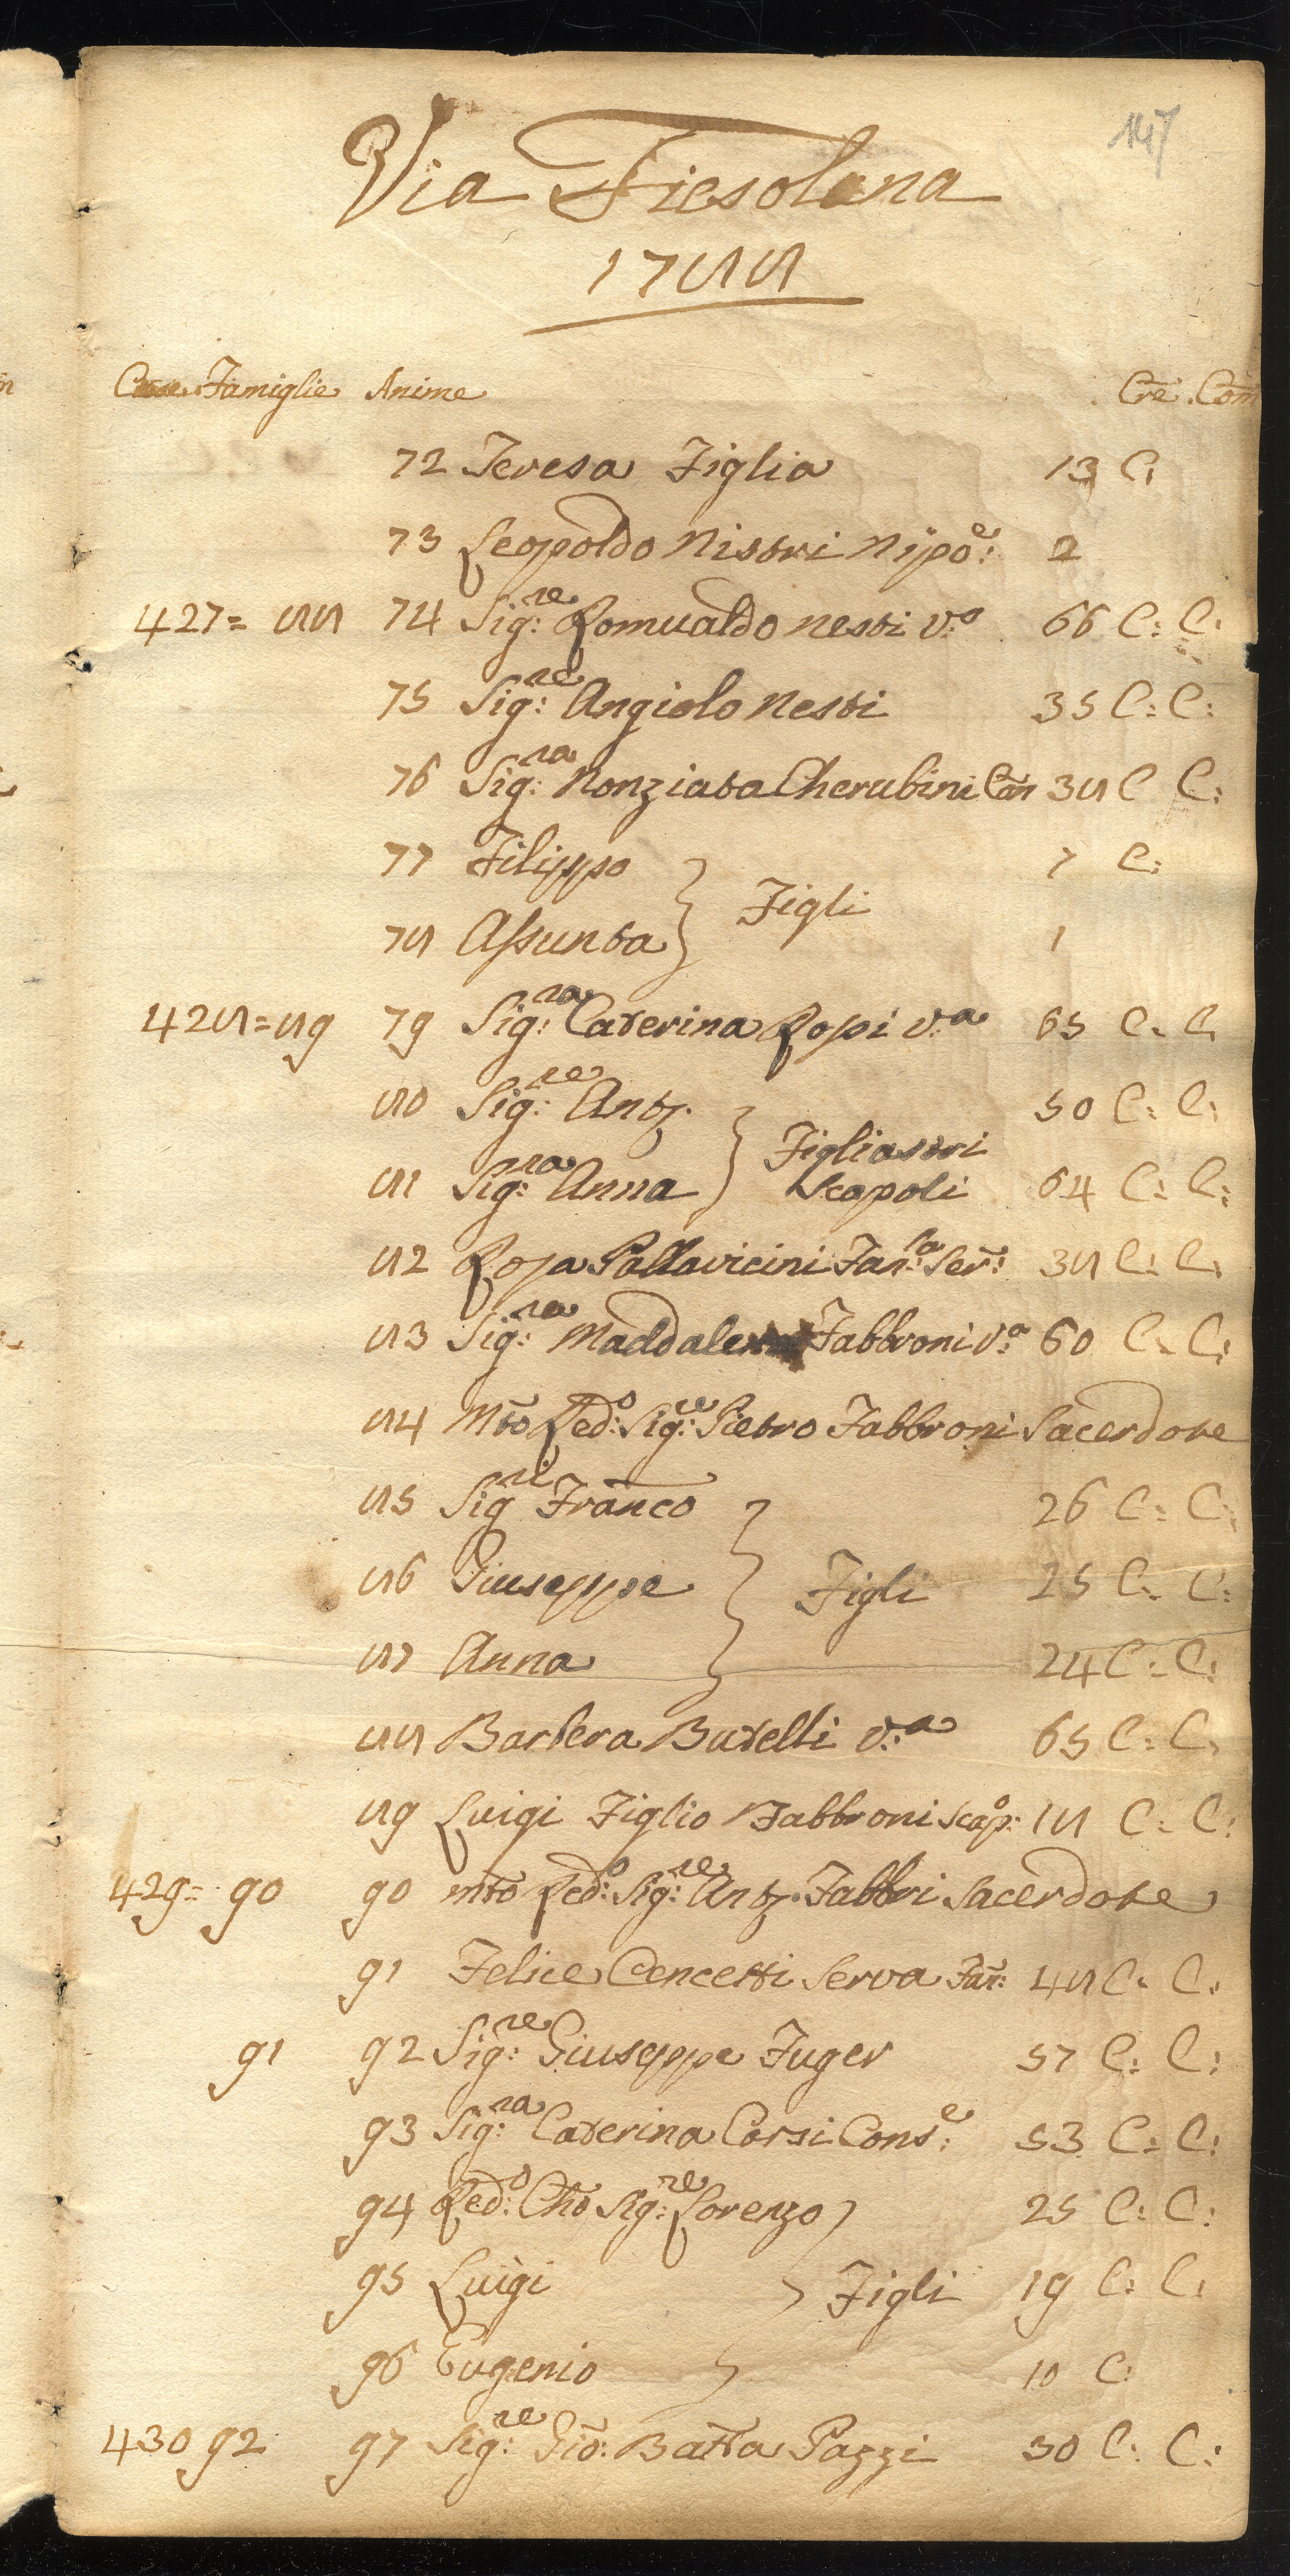 147
Via Fiesolana
1788
Case Famiglie Anime Cre. Com
72 Teresa Figlia 13 C:
73 Leopoldo Nistri Nipo:e 2
427= 88 74 Sig:re Romualdo Nesti V:o 66 C: C:
75 Sig:re Angiolo Nesti 35 C: C:
76 Sig:ra Nonziata Cherubini Con 38 C C:
77 Filippo 7 C:
} Figli
78 Assunta 1
428=89 79 Sig:ra Caterina Rossi V:a 65 C: C:
80 Sig:re Anto. 50 C: C:
} Figliastri
81 Sig:ra Anna Scapoli 64 C: C:
82 Rosa Pallavicini Fan:la Ser: 38 C: C:
83 Sig:ra Maddalena Fabbroni V:a 60 C: C:
84 Mto Red:o Sig:re Pietro Fabbroni Sacerdote
85 Sig:re Franco 26 C: C:
86 Giuseppe } Figli 25 C: C:
87 Anna 24 C: C:
88 Barbera Butelli V:a 65 C: C:
89 Luigi Figlio Fabbroni Scap:o 18 C: C:
429= 90 90 Mto Red:o Sig:re Anto. Fabbri Sacerdote
91 Felice Cencetti Serva Fan: 48 C: C:
91 92 Sig:re Giuseppe Fuger 57 C: C:
93 Sig:ra Caterina Corsi Cons:e 53 C: C:
94 Red:o Cho Sig:re Lorenzo 25 C: C:
95 Luigi } Figli 19 C: C:
96 Eugenio 10 C:
430 92 97 Sig:re Gio: Batta Pazzi 30 C: C: